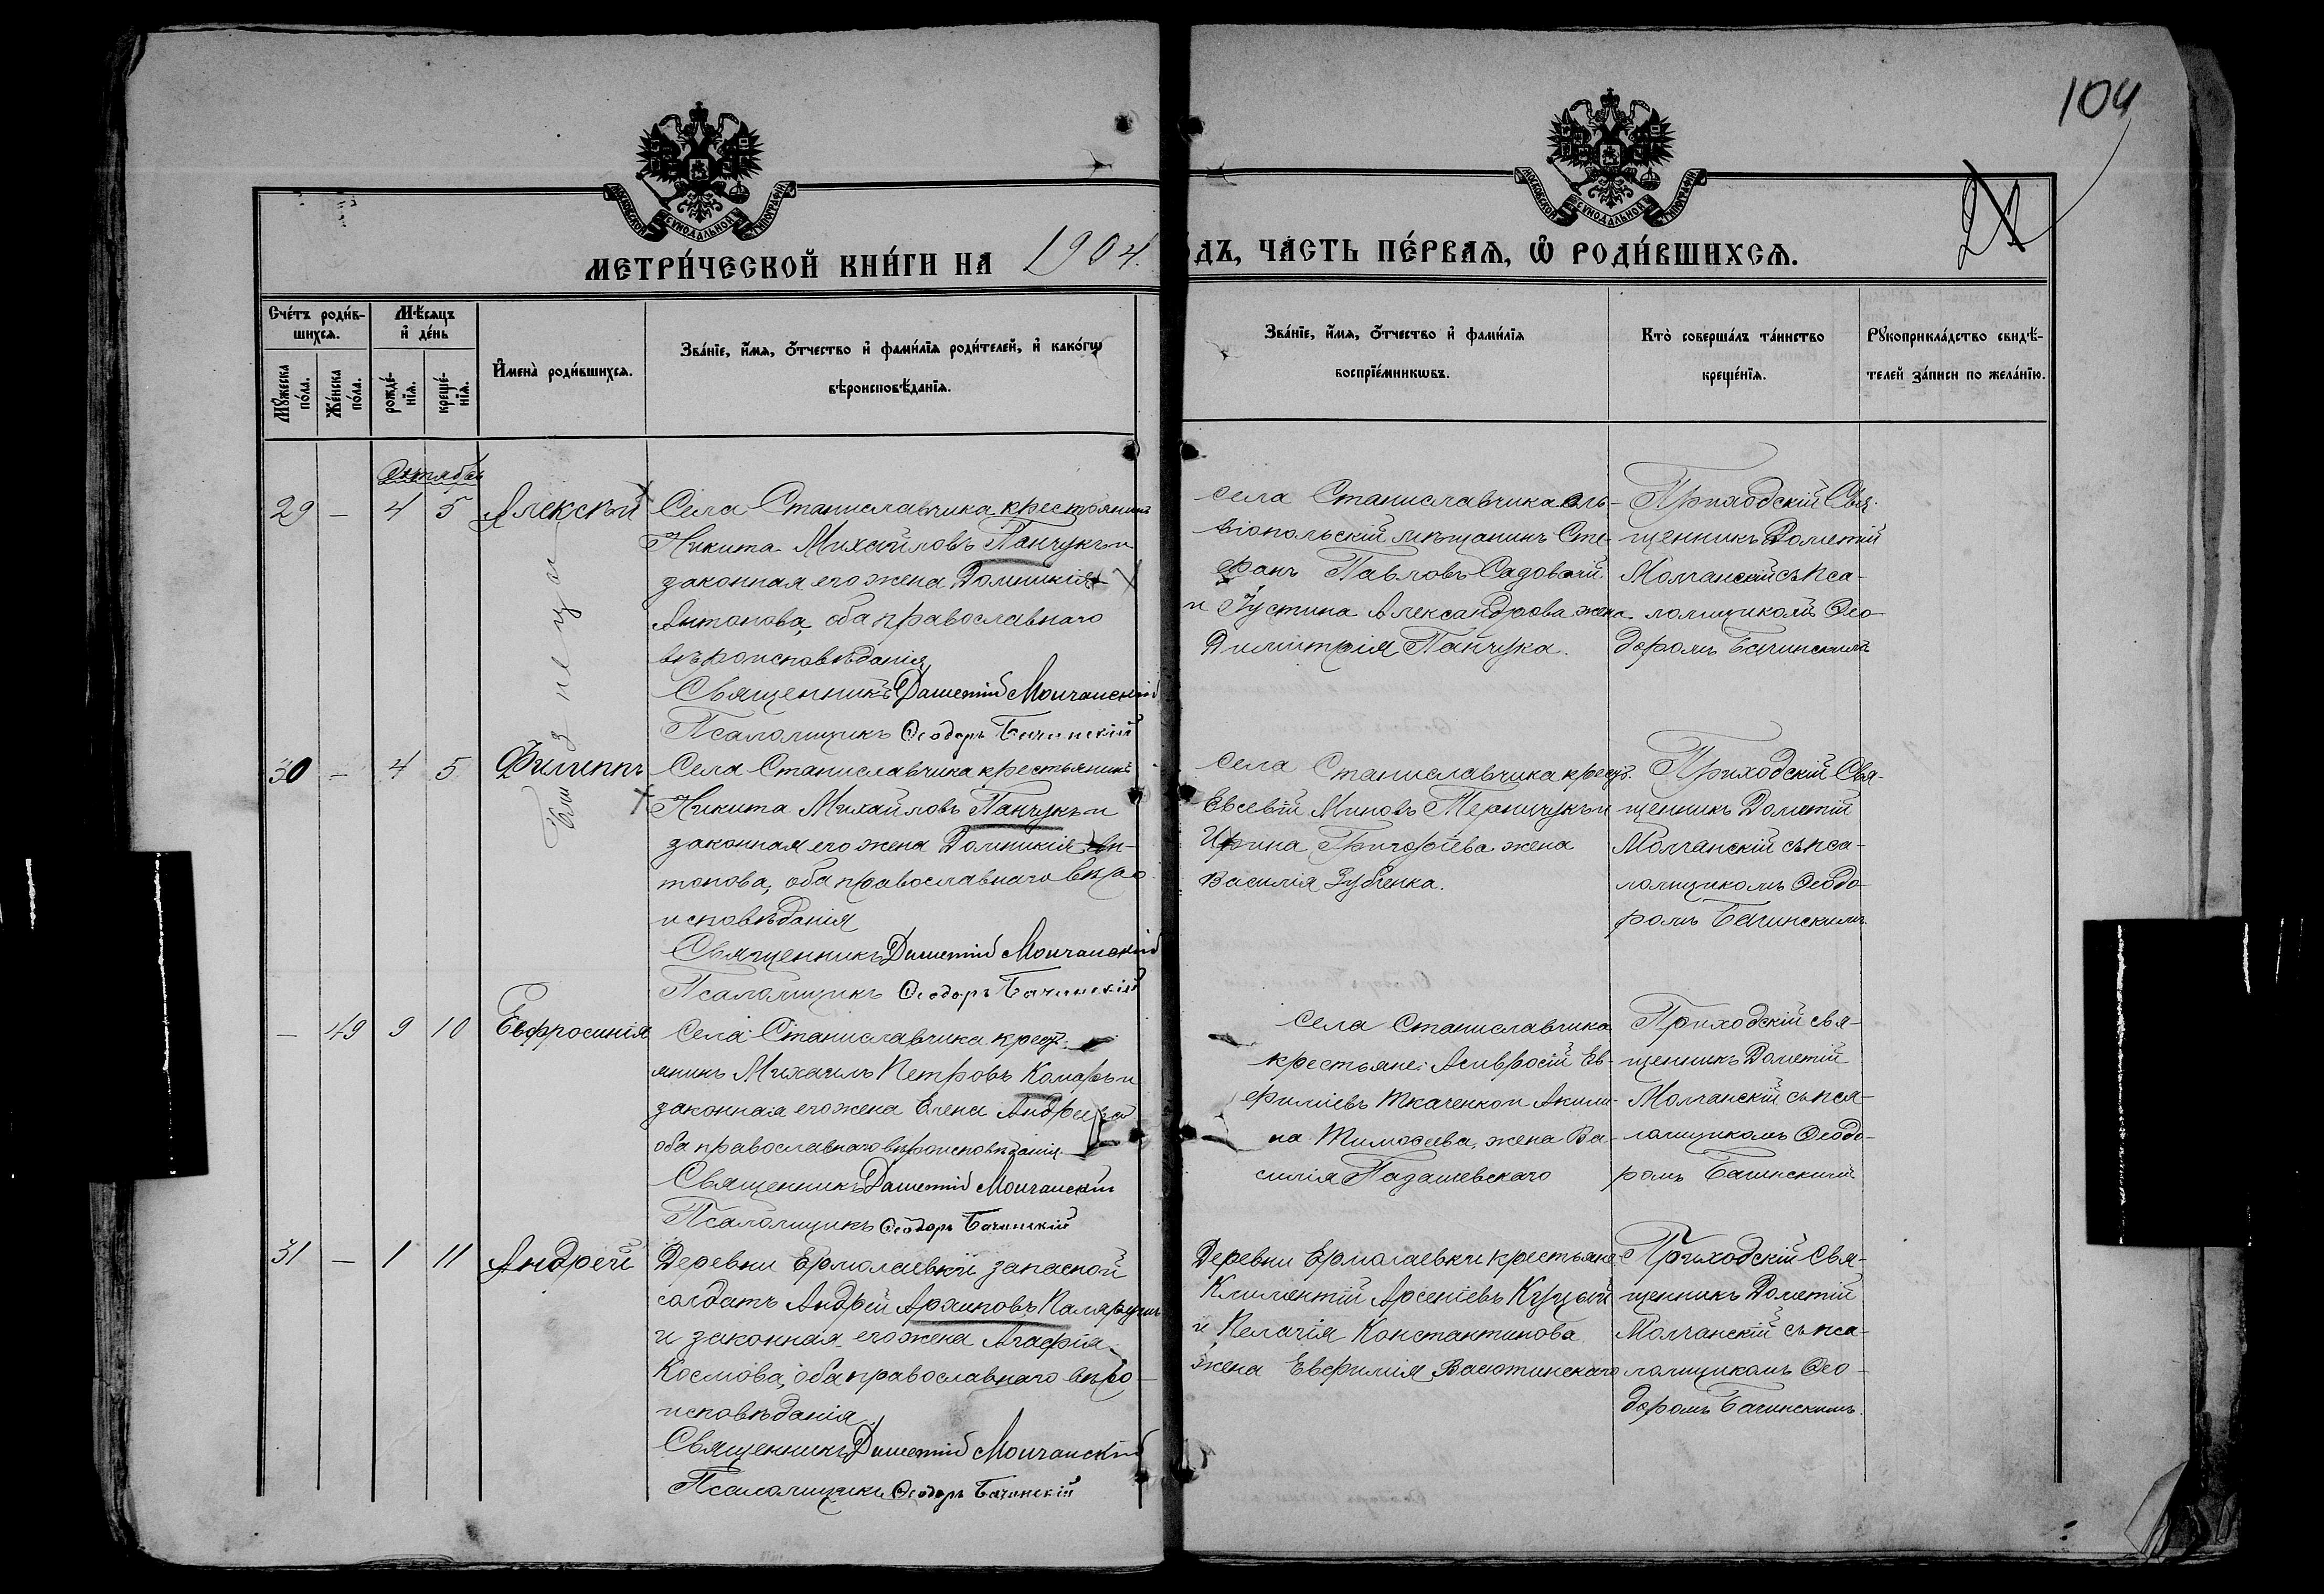 104
МОСКОВСКОЙ СѴНОДАЛЬНОЙ ТИПОГРАФІИ
МОСКОВСКОЙ СѴНОДАЛЬНОЙ ТИПОГРАФІИ
МЕТРИ́ЧЕСКОЙ КНИ́ГИ НА 1904.
ДЪ, ЧА́СТЬ ПЕ́РВАѦ, Ѽ РОДИ́ВШИХСѦ.
Сче́тъ роди́в-
шихсѧ.
Мꙋ́жеска
по́ла.
Же́нска
по́ла.
Мѣ́сѧцъ
и҆ де́нь
рожде́-
нїѧ.
креще́-
нїѧ.
И҆мена̀ роди́вшихсѧ.
Зва́нїе, и҆́мѧ, ѻ҆́тчество и҆ фами́лїѧ роди́телей, и҆ како́гѡ
вѣроисповѣ́данїѧ.
Зва́нїе, и҆́мѧ, ѻ҆́тчество и҆ фами́лїѧ
воспрїе́мникѡвъ.
Кто̀ соверша́лъ та́инство
креще́нїѧ.
Рꙋкоприкла́дство свидѣ́-
телей за́писи по жела́нїю.
Октябрь
29 — 4 5 Алексѣй
Села Станиславчика крестьянинъ
Никита Михайловъ Панчукъ и
законная его жена Домникія
Антонова, оба православнаго
вѣроисповѣданія
Священникъ Дометій Молчанскій
Псаломщикъ Ѳеодоръ Бачинскій
села Станиславчика Оль-
віопольскій мѣщанинъ Сте-
фанъ Павловъ Садовскій
и Іустина Александрова жена
Димитрія Панчука.
Приходскій Свя-
щенникъ Дометій
Молчанскій съ пса-
ломщикомъ Ѳео-
доромъ Бачинскимъ
Близнецы
30 — 4 5 Филиппъ
Села Станиславчика крестьянинъ
Никита Михайловъ Панчукъ и
законная его жена Домникія Ан-
тонова, оба православнаго вѣро-
исповѣданія
Священникъ Дометій Молчанскій
Псаломщикъ Ѳеодоръ Бачинскій
села Станиславчика крест.
Евсевій Миновъ и
Ирина Григоріева жена
Василія Зубченка.
Приходскій Свя-
щенникъ Дометій
Молчанскій съ пса-
ломщикомъ Ѳеодо-
ромъ Бачинскимъ
— 49 9 10 Евфросинія
Села Станиславчика крест-
янинъ Михаилъ Петровъ Комаръ и
законная его жена Елена Андреева
оба православнаго вѣроисповѣданія
Священникъ Дометій Молчанскій
Псаломщикъ Ѳеодоръ Бачинскій
Села Станиславчика
крестьяне: Амвросій Ев-
фиміевъ Ткаченко и Акили-
на Тимоѳеева, жена Ва-
силія Подашевскаго
Приходскій свя-
щенникъ Дометій
Молчанскій съ пса-
ломщикомъ Ѳеодо-
ромъ Бачинскимъ
31 — 1 11 Андрей
Деревни Ермолаевки запасной
солдатъ Андрей Архиповъ
и законная его жена Агафія
Космова, оба православнаго вѣро-
исповѣданія
Священникъ Дометій Молчанскій
Псаломщикъ Ѳеодоръ Бачинскій
Деревни Ермолаевки крестьяне
Климентій Арсеніевъ Куцый
и Пелагія Константинова
жена Евфимія Васютинскаго
Приходскій Свя-
щенникъ Дометій
Молчанскій съ пса-
ломщикомъ Ѳео-
доромъ Бачинскимъ.